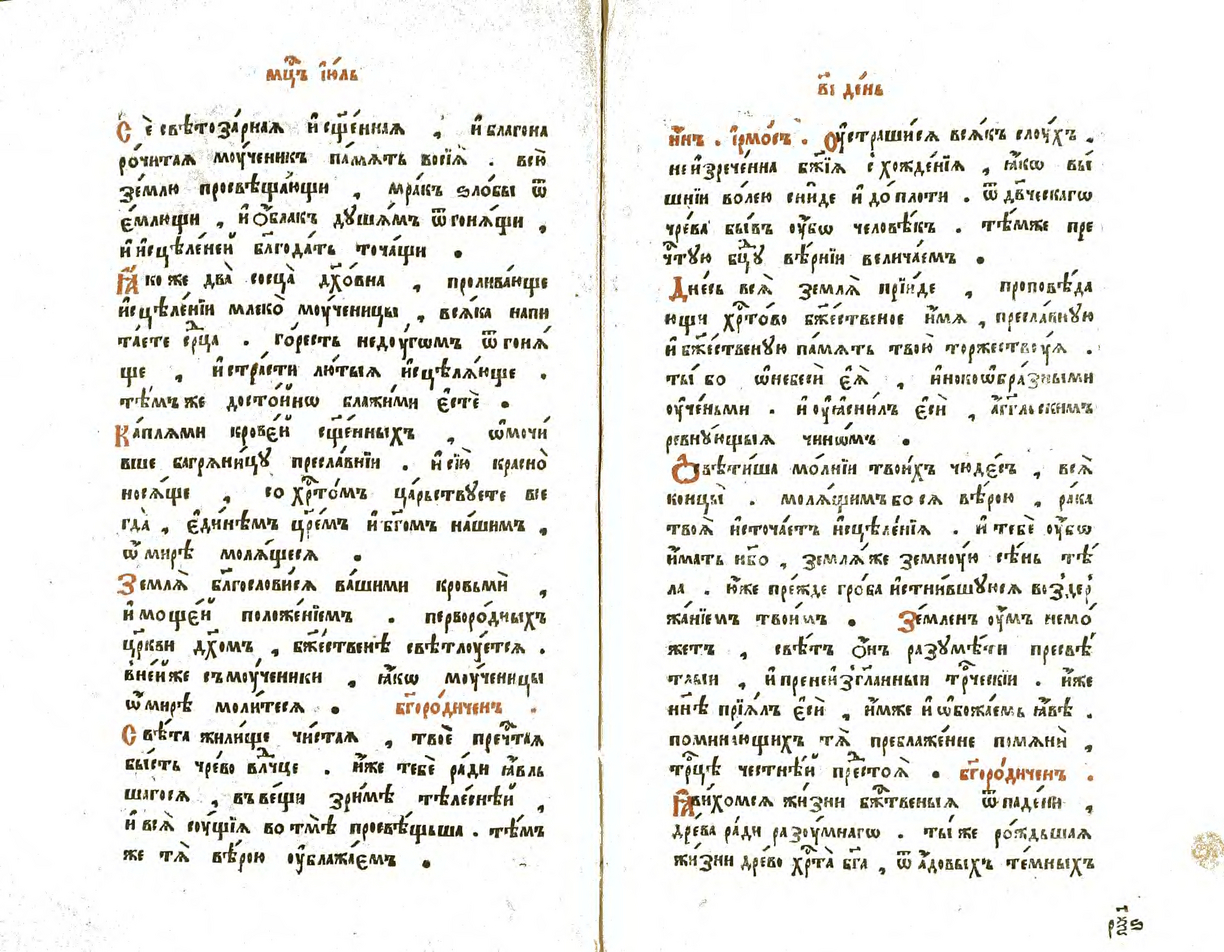 мц҃ъ і҆ю́ль
С е҆ свѣтоза́рная и҆ сщ҃е́нная , и҆ благона
ро́читая моу́ченикъ па́мять восїя̀ . всю̀
зе́млю просвѣща́ющи , мра́къ ѕло́бы ѿ
е́млющи , и҆ ѻ҆́блакъ дꙋша́мъ ѿгоня́щи ,
и҆ и҆сцѣле́ней бл҃года́ть точа́щи .
Ꙗ҆́ коже два̀ сосца̀ дх҃о́вна , пролива́юще
и҆сцѣле́нїи млеко̀ моу́ченицы , вся́ка напи
та́ете ср҃ца . го́ресть недоу́гомъ ѿгоня́
ще , и҆ стра́сти лю́тыя и҆сцѣля́юще .
тѣ́мъ же досто́йнѡ блажи́ми е҆стѐ .
К а́плями крове́й сщ҃е́нныхъ , ѡ҆мочи́
вше багряни́цꙋ пресла́внїи . и҆ сїю̀ красно̀
нося́ще , со хрⷭ҇то́мъ ца́рьствꙋете все
гда̀ , е҆ди́нѣмъ цр҃е́мъ и҆ бг҃омъ на́шимъ ,
ѡ҆ ми́рѣ моля́щеся .
З емля̀ бл҃гослови́ся ва́шими кровьмѝ ,
и҆ моще́й положе́нїемъ . перворо́дныхъ
цр҃кви дх҃омъ , бж҃е́ственѣ свѣтлоу́ется .
в не́йже съ моу́ченики , ꙗ҆́кѡ моу́ченицы
ѡ҆ ми́рѣ моли́теся . бг҃оро́диченъ .
С вѣ́та жили́ще чи́стая , твоѐ прⷱ҇тая
бы́сть чре́во влⷣчце . и҆́же тебѐ ра́ди ꙗ҆́вль
шагося , въ ве́щи зри́мѣ тѣле́снѣй ,
и҆ вся̀ соу́щїя во тмѣ̀ просвѣ́щьша . тѣ́мъ
же тя̀ вѣ́рою оу҆блажа́емъ .
в҃і де́нь
ны́нѣ . і҆рмо́съ . Оу҆страши́ся вся́къ слоу́хъ .
неи҆зрече́нна бж҃їя схожде́нїя , ꙗ҆́кѡ вы́
шнїи во́лею сни́де и҆ до пло́ти . ѿ дв҃ческагѡ
чре́ва бы́въ оу҆́бѡ человѣ́къ . тѣ́мже пре
чⷭ҇тꙋю бц҃ꙋ вѣ́рнїи велича́емъ .
Д не́сь вся̀ земля̀ прїи́де , проповѣ́да
ющи хрⷭ҇то́во бж҃е́ственое и҆́мя , пресла́внꙋю
и҆ бж҃е́ственꙋю па́мять твою̀ торжествоу́я .
ты́ бо ѡ҆ небесѝ е҆я̀ , и҆нокоѡбра́зными
оу҆че́ньми . и҆ оу҆ясни́лъ е҆сѝ , а҆́гг҃льскимъ
ревнꙋ́ющыя чинѡ́мъ .
Ѡ҆ свѣти́ша мо́лнїи твои́хъ чюде́съ , вся̀
концы̀ . моля́щимъ бо ся вѣ́рою , ра́ка
твоя̀ и҆сточа́етъ и҆сцѣле́нїя . и҆ тебѐ оу҆́бѡ
и҆́мать не́бо , земля́ же земноу́ю сѣ́нь тѣ́
ла . ю҆́же пре́жде гро́ба и҆стни́вшꙋюся возде́р
жа́нїемъ твои́мъ . З е́мленъ оу҆́мъ не мо́
жетъ , свѣ́тъ ѻ҆́нъ разꙋмѣ́ти пресвѣ́
тлыи , и҆ пренеи҆зг҃ла́нныи трⷪ҇ческїи . и҆́же
нн҃ѣ прїя́лъ е҆сѝ , и҆́мже и҆ ѡ҆божа́емь ꙗ҆́вѣ .
помина́ющихъ тя̀ преблаже́нне помянѝ ,
трⷪ҇цѣ честнѣ́й престоя̀ . бг҃оро́диченъ .
Ꙗ҆ ви́хомся жи́зни бжⷭ҇твеныя ѿпаде́ни ,
дре́ва ра́ди разоу́мнагѡ . ты́ же ро́ждьшая
жи́зни дре́во хрⷭ҇та̀ бг҃а , ѿ а҆́довыхъ те́мныхъ